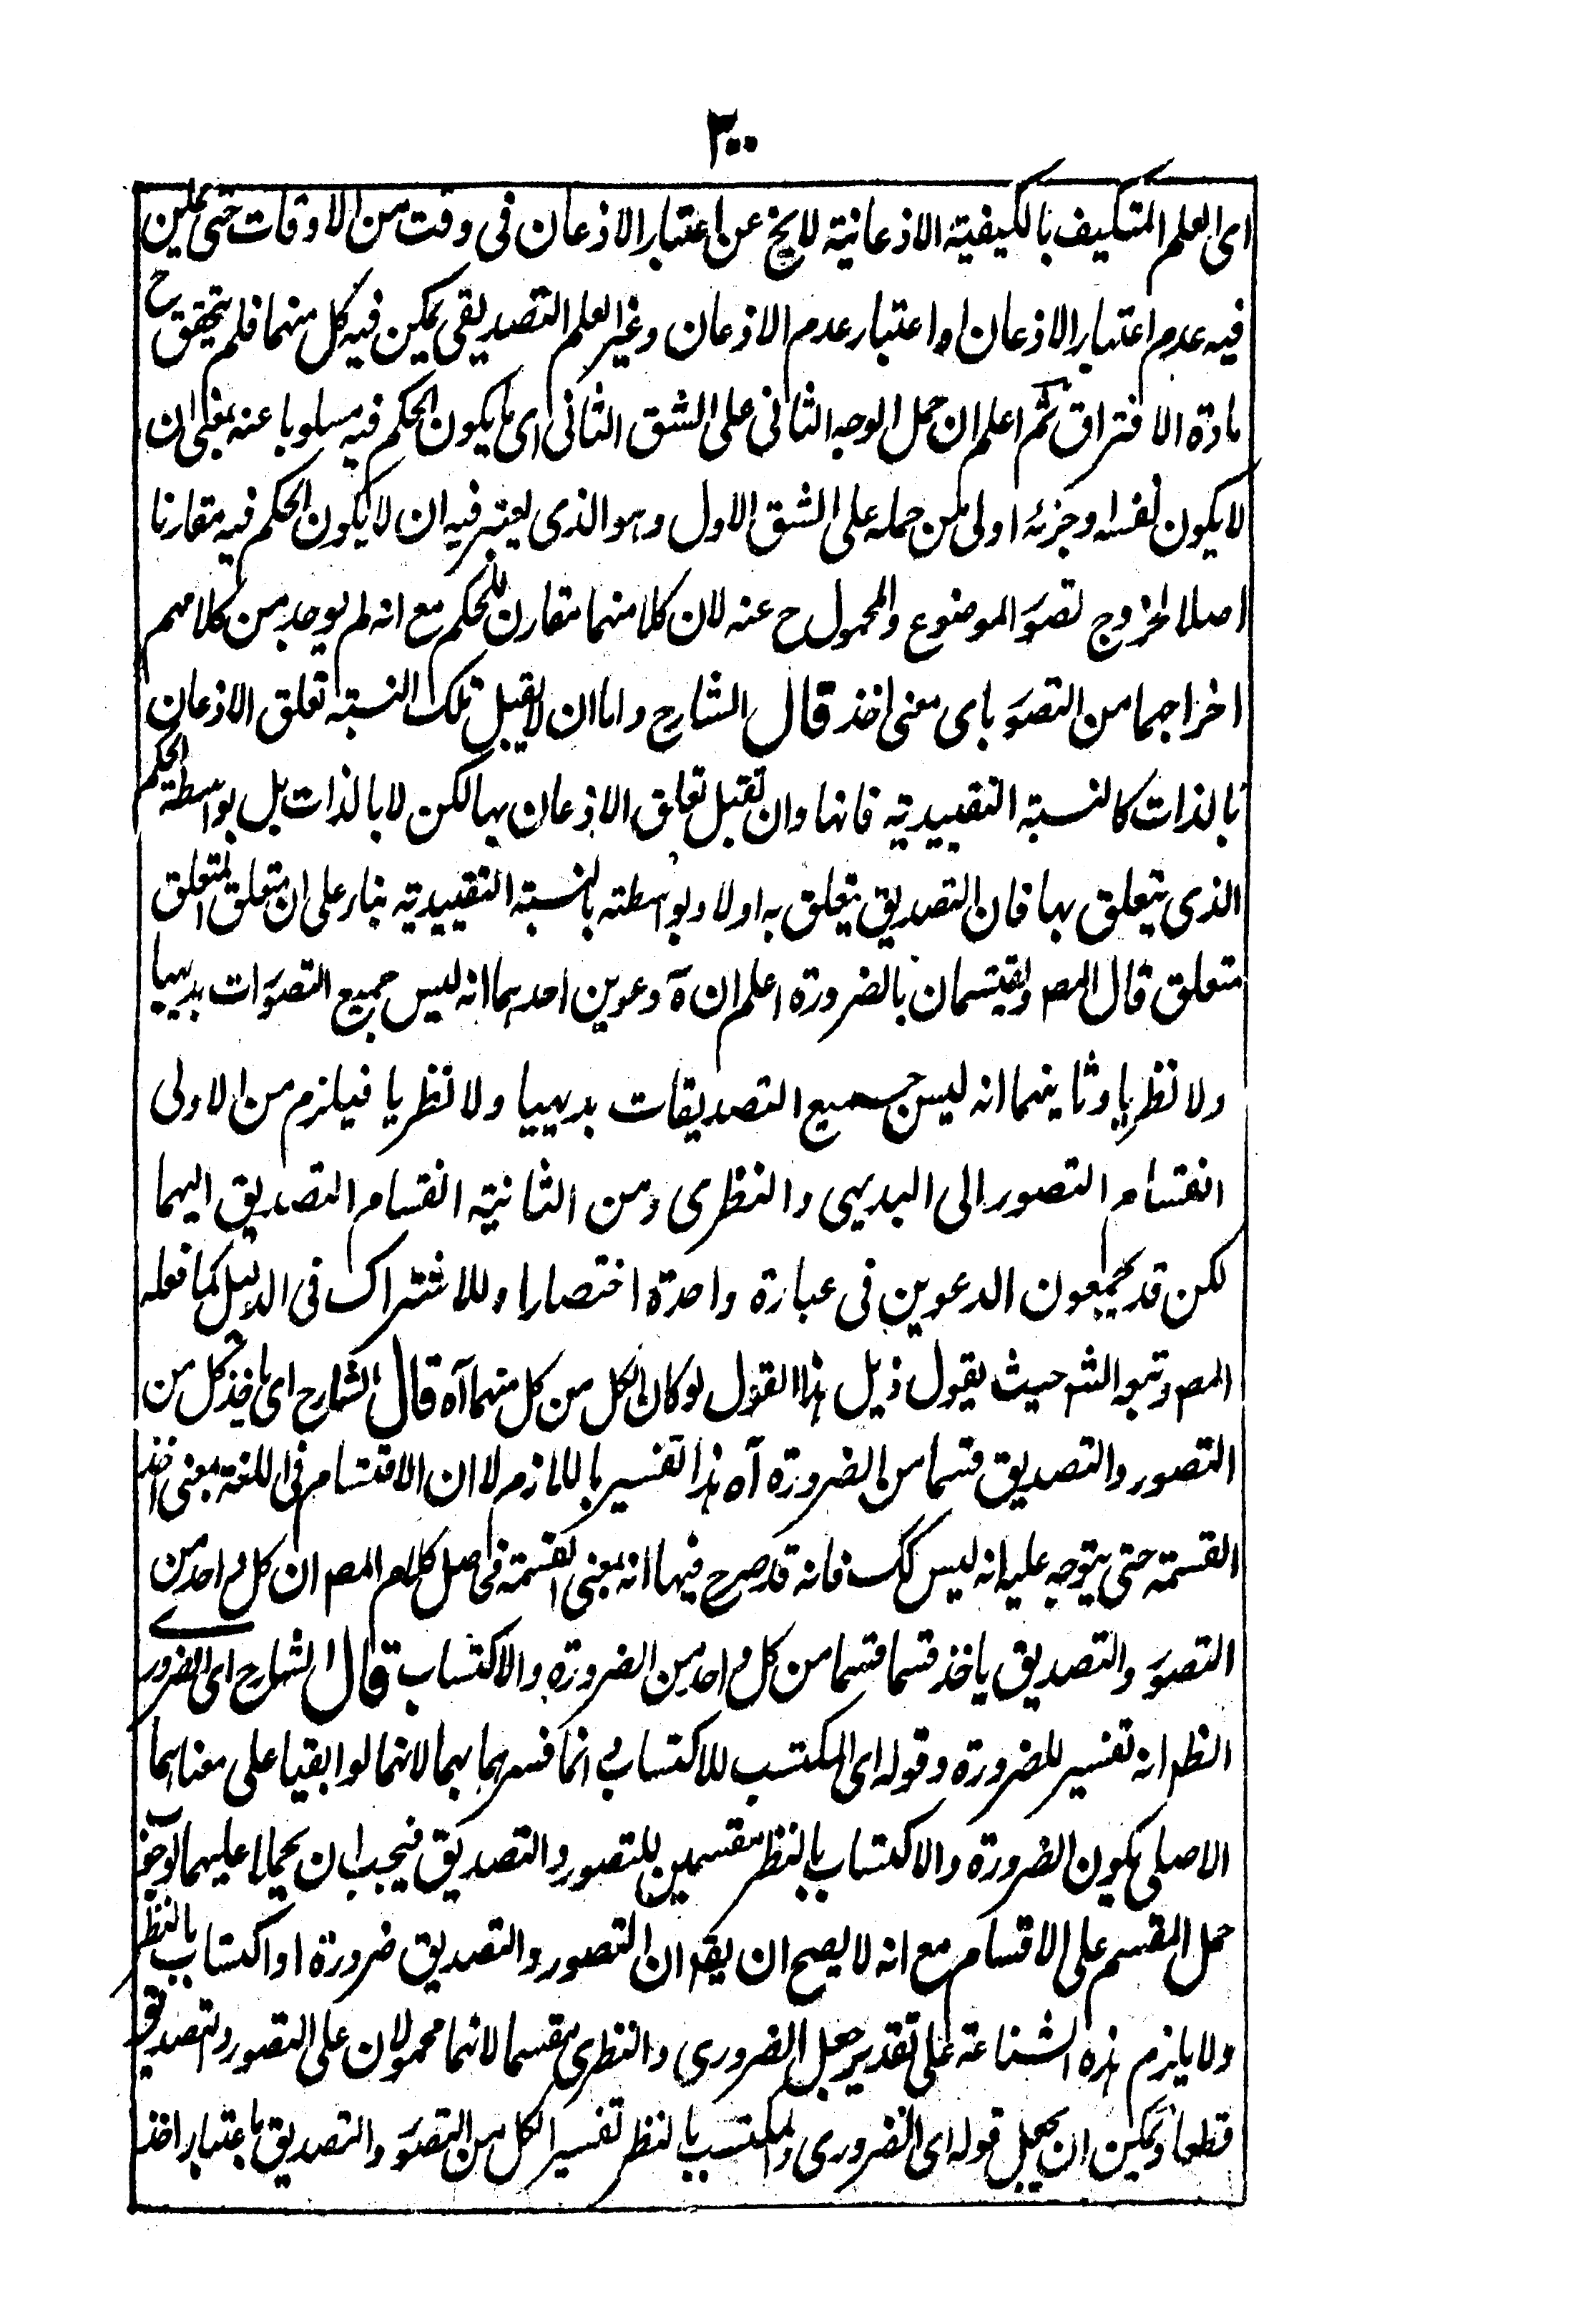 ٣٠٠
اى العلم المتكيف بالكيفية الاذعانية لايخ عن اعتبار الاذعان فى وقت من الاوقات حتى يمكن
فيه عدم اعتبار الاذعان او اعتبار عدم الاذعان وغير العلم التصديقى يمكن فيه كل منهما فلم يتحقق ح
مادة الافتراق ثم اعلم ان حمل الوجه الثانى على الشق الثانى اى ما يكون الحكم فيه مسلوبا عنه بمعنى ان
لا يكون نفسه او جزئه اولى من حمله على الشق الاول وهو الذى يعتبر فيه ان لا يكون الحكم فيه مقارنا
اصلا لخروج تصوَر الموضوع والمحمول ح عنه لان كلا منهما مقارن للحكم مع انه لم يوجد من كلامهم
اخراجهما من التصوَر باى معنى اخذ قال الشارح واما ان لا يقبل تلك النسبة تعلق الاذعان
بالذات كالنسبة التقييدية فانها وان تقبل تعلق الاذعان بها لكن لا بالذات بل بواسطة الحكم
الذى يتعلق بها فان التصديق يتعلق به اولا وبواسطته بالنسبة التقييدية بناء على ان متعلق المتعلق
متعلق قال المص ويقتسمان بالضرورة اعلم ان ه دعوين احدهما انه ليس جميع التصوَرات بديهيا
ولا نظريا وثانيهما انه ليس جميع التصديقات بديهيا ولا نظريا فيلزم من الاولى
انقسام التصور الى البديهى والنظرى ومن الثانية انقسام التصديق اليهما
لكن قد يجمعون الدعوين فى عبارة واحدة اختصارا وللاشتراك فى الدليل كما فعله
المص وتبعه الش حيث يقول ذيل هذا القول لو كان الكل من كل منهما آه قال الشارح اى ياخذ كل من
التصور والتصديق قسما من الضرورة آه هذا تفسير باللازم لا ان الاقتسام فى اللغة بمعنى اخذ
القسمة حتى يتوجه عليه انه ليس كك فانه قد صرح فيها انه بمعنى القسمة فى اصل كلام المص ان كل واحد من
التصوَر والتصديق ياخذ قسما قسما من كل واحد من الضرورة والاكتساب قال الشارح اى الضرورى
الظ انه تفسير للضرورة وقوله اى المكتسب للاكتساب و انما فسرهما بهما لانهما لو ابقيا على معناهما
الاصلى يكون الضرورة والاكتساب بالنظر مقسمين للتصور والتصديق فيجب ان يحملا عليهما لوجوب
حمل المقسم على الاقسام مع انه لا يصح ان يقم ان التصور والتصديق ضرورة او اكتساب بالنظر
ولا يلزم هذه الشناعة على تقدير جعل الضرورى والنظرى مقسما لانهما محمولان على التصور والتصديق
قطعا ويمكن ان يجعل قوله اى الضرورى والمكتسب بالنظر تفسير الكل من التصوَر والتصديق باعتبار اخذ